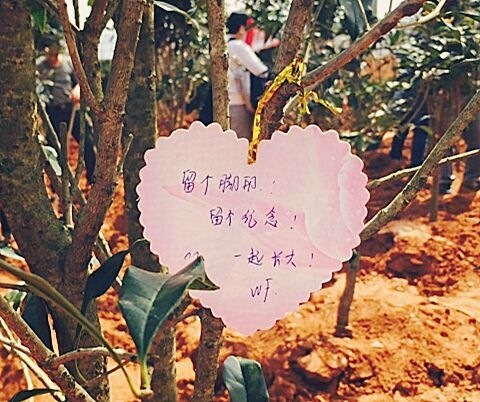 留个脚印！
留个纪念！
一起长大！
WF.